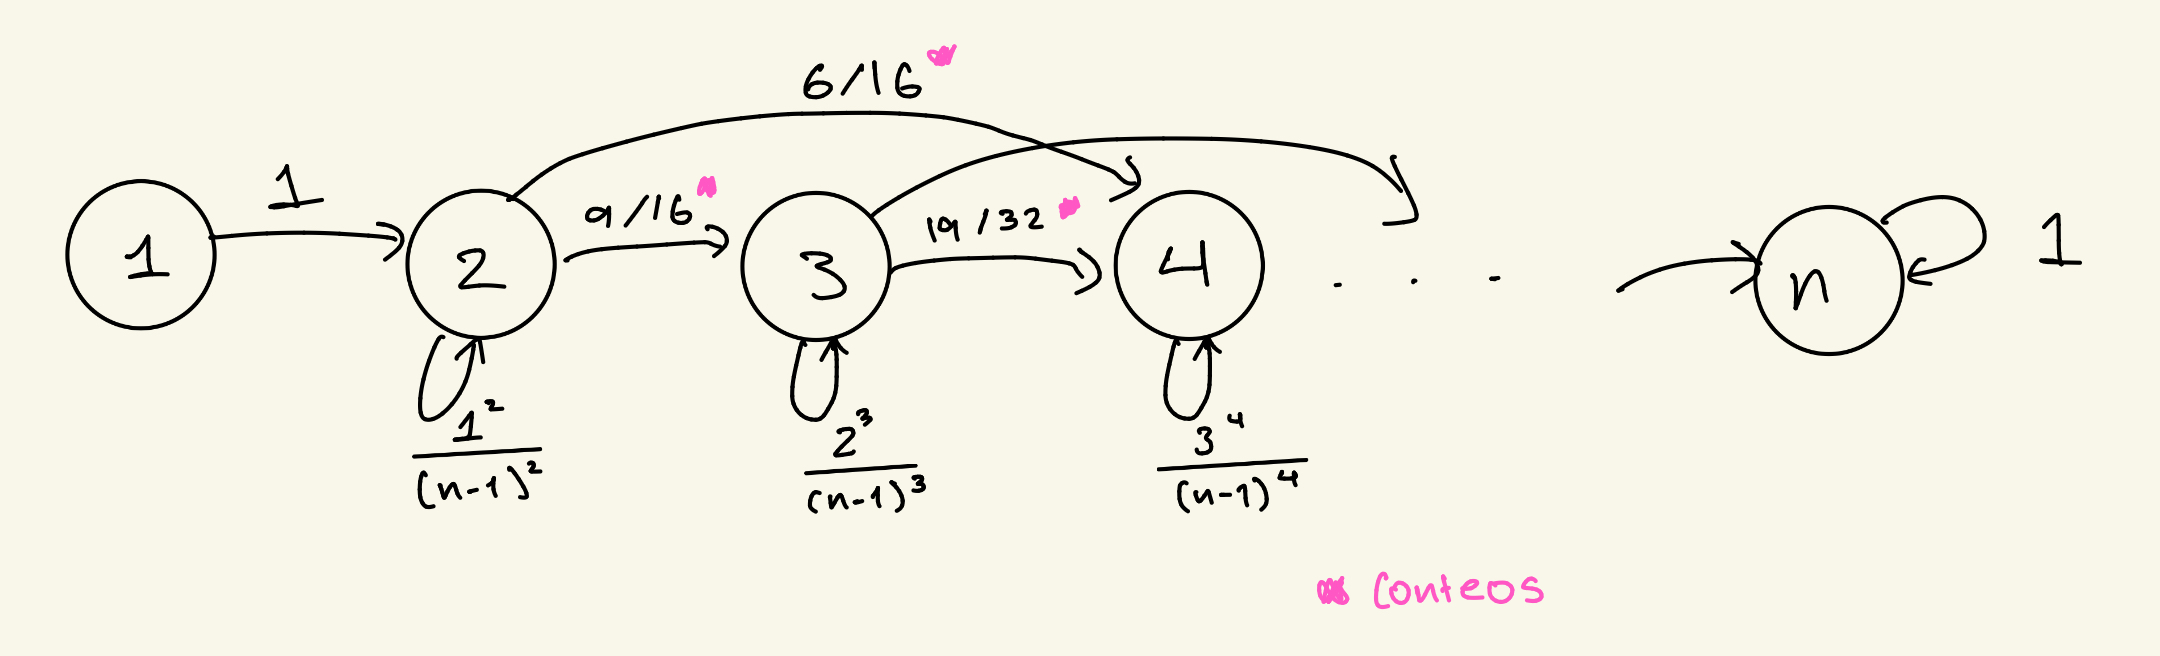 6/16
1
9/16
19/32
1
2
3
4
. . .
n
1
1²/(n-1)²
2³/(n-1)³
3⁴/(n-1)⁴
Conteos